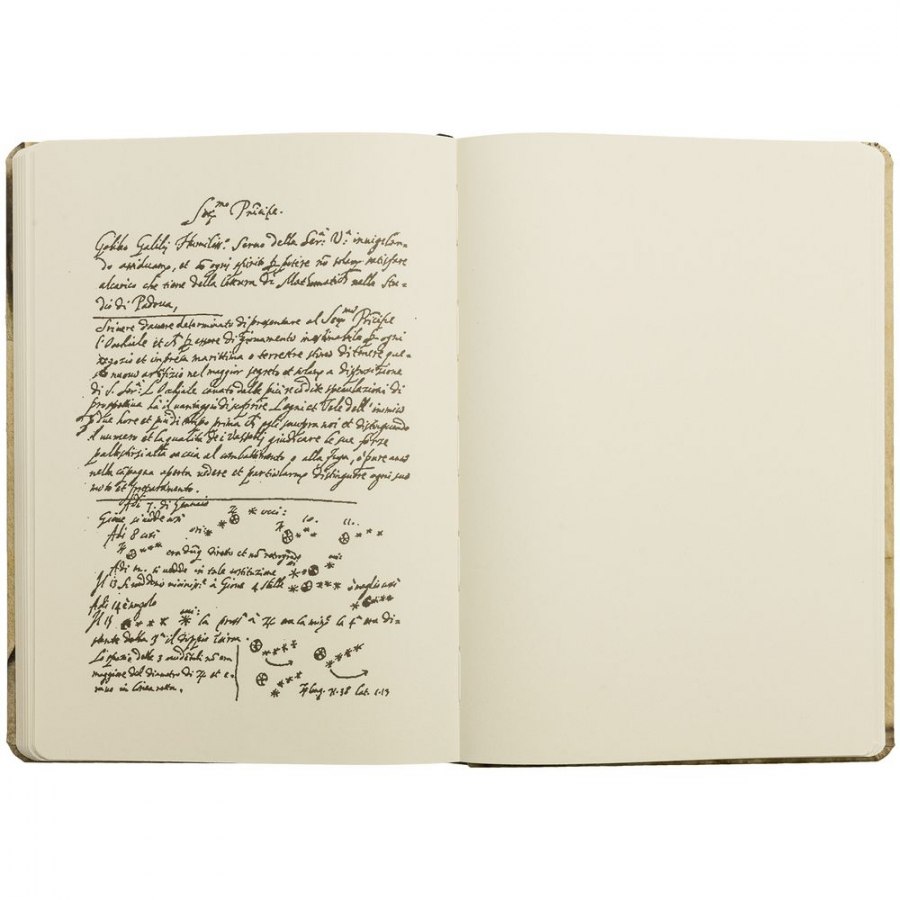 Ser.mo Pri͠cipe.
Galileo Galilej Humiliss.o Seruo della Ser.a V.a inuigilan-
do assiduam.e, et cõ ogni spirito p potere nõ solam.e satisfare
alcarico che tiene della lettura di Mathematica nello Stu-
dio di Padoua,
Scriuere d'auere determinato di presentare al Ser.mo Pri͠cipe
l'Occhiale et p essere di giouamento inestimabile p ogni
negozio et impresa marittima o terrestre stimo di tenere que-
sto nuouo artifizio nel maggior segreto et solam.e a disposizione
di S. Ser.a L'Occhiale cauato dalle più recõdite speculazioni di
prospettiua hà il uantaggio di scoprire Legni et Vele dell' inimico
p due hore et più di tempo prima ch egli scuopra noi et distinguendo
il numero et la qualità de i Vasselli giudicare le sue forze
pallestirsi alla caccia al combattimento o alla fuga, o pure anco
nella cãpagna aperta uedere et particolarm.e distinguere ogni suo
moto et preparamento.
Adi 7. di Gennaio
Gioue si uedde così occi:
Adi 8 così ori: 10. 11..
era dũq diretto et nõ retrogrado
Adi 12. si uedde in tale costituzione
Il 13 si ueddero à Gioue 4 stelle ò meglio così
Adi 14 è nugolo
Il 15 la pross.a à la 4.a era di-
stante dalla 3.a il doppio
Lo spazio delle 3 occidentali nõ era
maggiore del diametro di et e-
rano in linea retta.